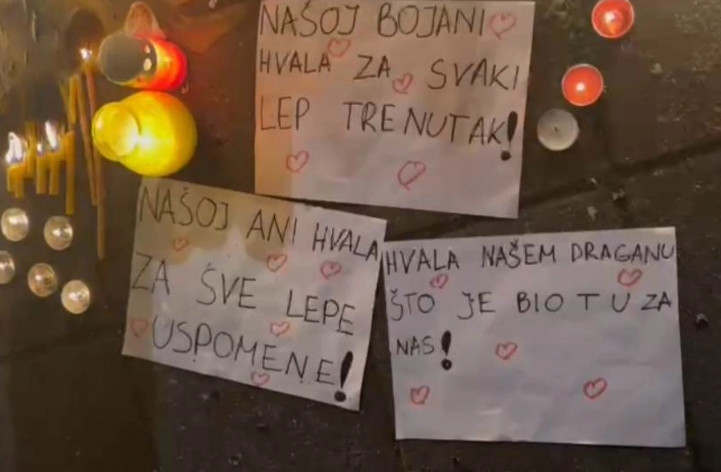 NAŠOJ BOJANI
HVALA ZA SVAKI
LEP TRENUTAK!
NAŠOJ ANI HVALA
ZA SVE LEPE
USPOMENE!
HVALA NAŠEM DRAGANU
ŠTO JE BIO TU ZA
NAS!